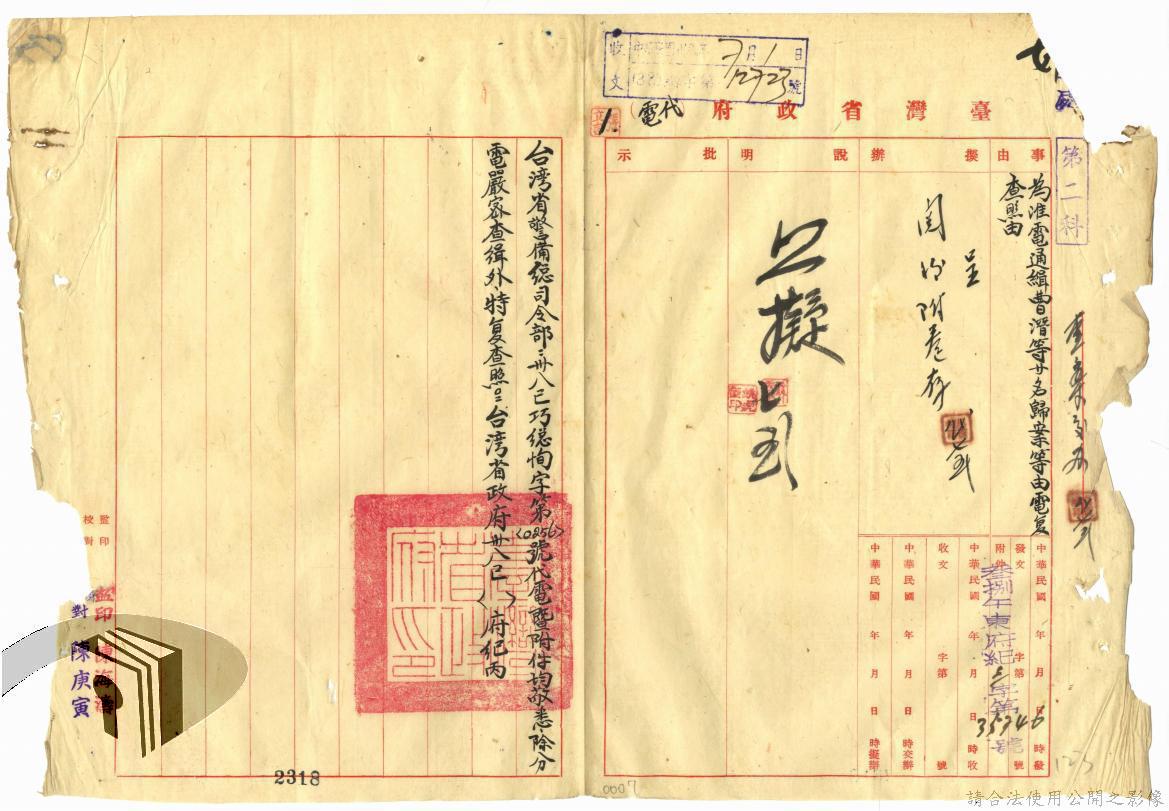 收文
7月1日
12723號
臺灣省政府(代電)
第二科
事由
擬辦
說明
批示
為准電通緝曹潛等廿名歸案等由電复
查照由
呈
閱後附卷存
如擬
中華民國 年 月 日 時發
發文 字第 號
附件
叁捌午東府紀 字第 號
35946
中華民國 年 月 日 時收
收文 字第 號
中華民國 年 月 日 時交辦
中華民國 年 月 日 時擬辦
台湾省警備總司令部:卅八已巧總恂字第(0256)號代電暨附件均敬悉除分
電嚴密查緝外特复查照台湾省政府卅八已( )府紀丙
臺灣省政府印
監印
校對
監印 陳海濤
對 陳庚寅
2318
0007
123
請合法使用公開之影像